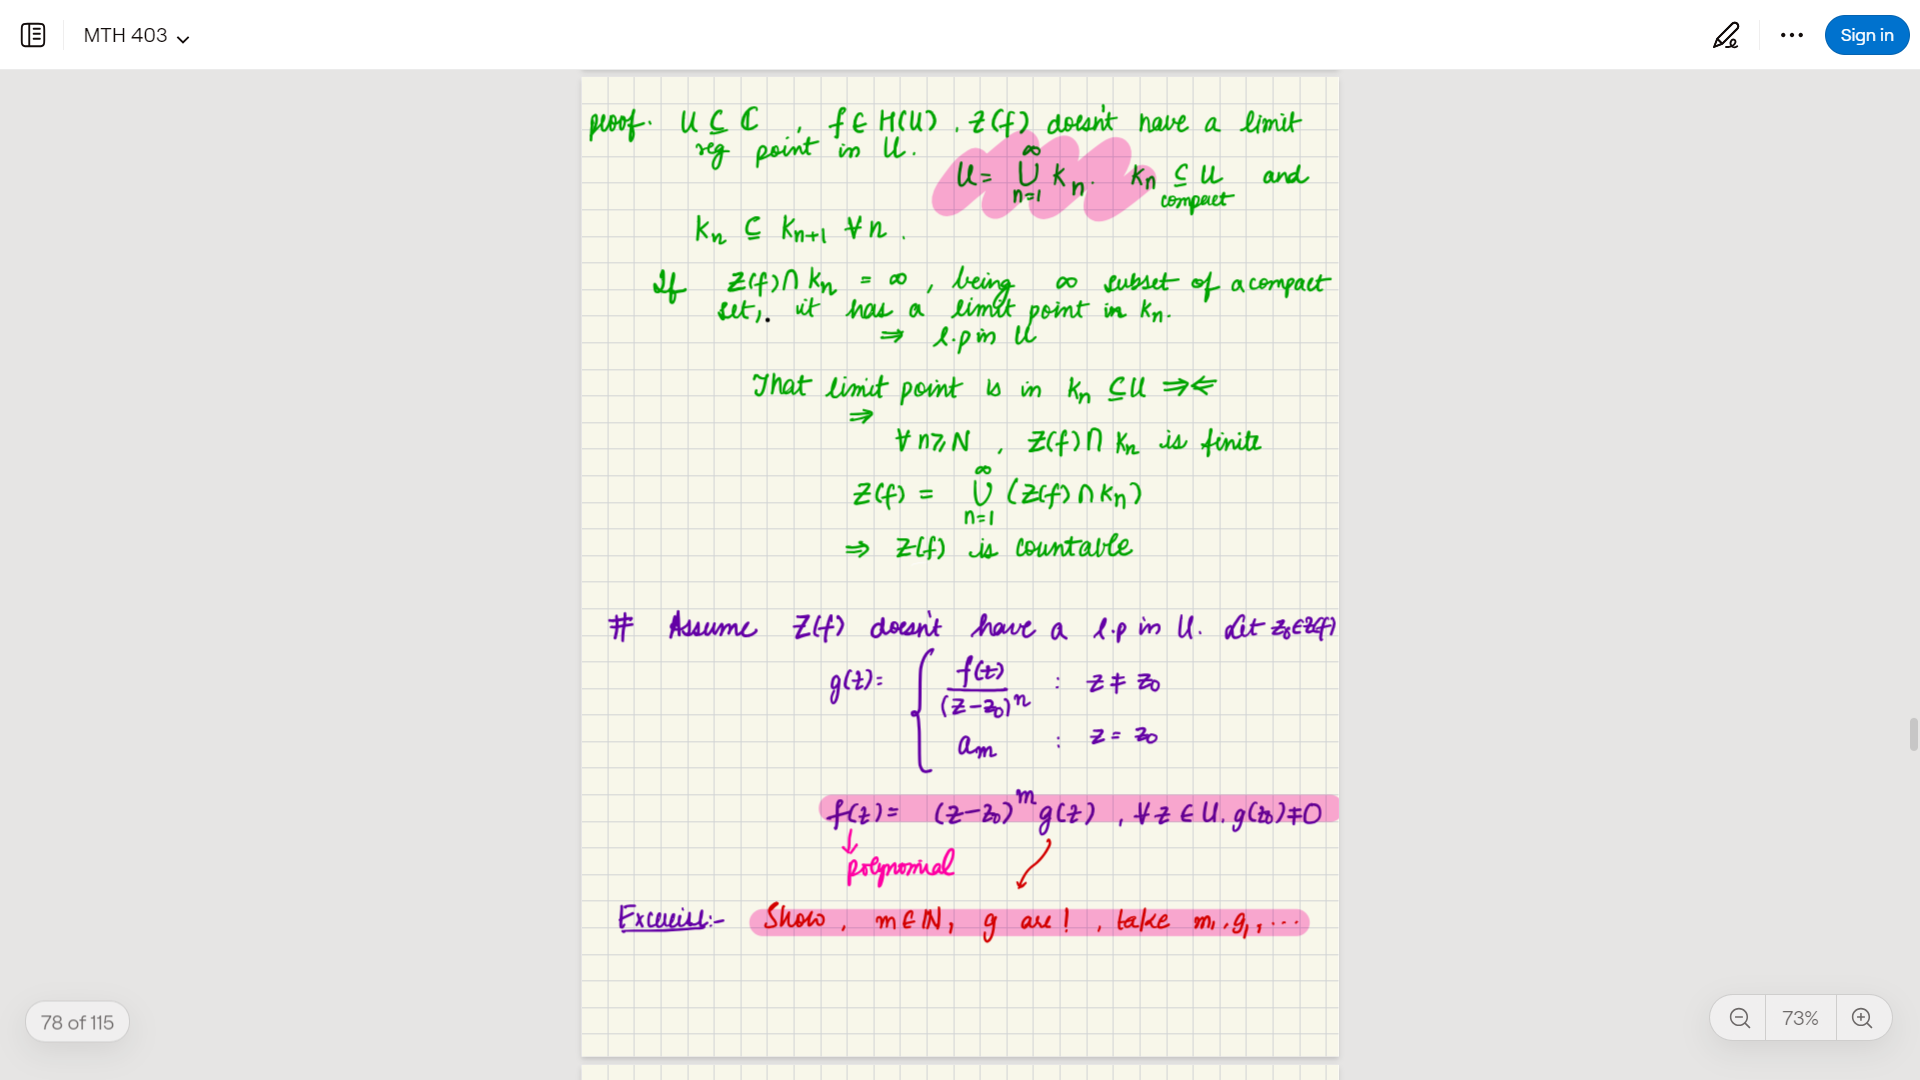 MTH 403
Sign in
proof. U ⊆ ℂ , f ∈ H(U) , Z(f) doesn't have a limit
reg point in U.
U = ⋃_{n=1}^{∞} K_n . K_n ⊆ U and
compact
K_n ⊆ K_{n+1} ∀ n .
If Z(f) ∩ K_n = ∞ , being ∞ subset of a compact
set, it has a limit point in K_n.
⇒ l.p in U
That limit point is in K_n ⊆ U ⇒⇐
⇒
∀ n ≥ N , Z(f) ∩ K_n is finite
Z(f) = ⋃_{n=1}^{∞} (Z(f) ∩ K_n)
⇒ Z(f) is countable
# Assume Z(f) doesn't have a l.p in U. Let z_0 ∈ Z(f)
g(z) = { f(z)/(z-z_0)^n : z ≠ z_0
a_m : z = z_0
f(z) = (z-z_0)^m g(z) , ∀ z ∈ U. g(z_0) ≠ 0
↓
polynomial
Exercise:- Show , m ∈ ℕ, g are ! , take m_1, g_1, ...
78 of 115
73%